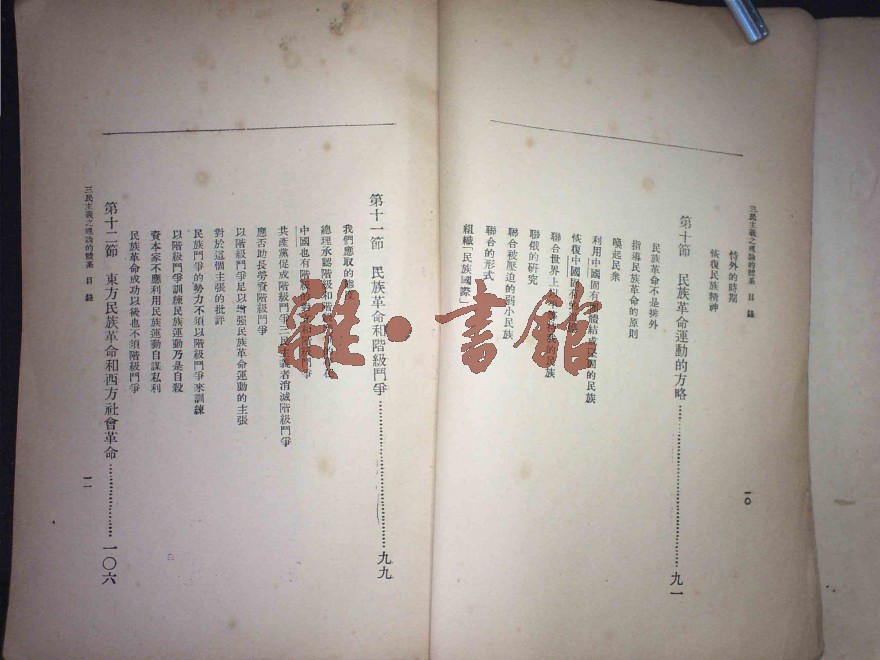 三民主義之理論的體系 目錄
一〇
恃外的時期
恢復民族精神
第十節 民族革命運動的方略……九一
民族革命不是排外
指導民族革命的原則
喚起民衆
利用中國固有 體結成 民國的民族
恢復中國固
聯合世界上 的民族
聯俄的研究
聯合被壓迫的弱小民族
聯合的形式
組織「民族國際」
第十一節 民族革命和階級鬥爭……九九
我們應取的態度
總理承認階級和階
中國也有階級的 和階級鬥爭
共產黨促成階級鬥爭三民主義者消滅階級鬥爭
應否助長勞資階級鬥爭
以階級鬥爭足以增强民族革命運動的主張
對於這個主張的批評
民族鬥爭的勢力不須以階級鬥爭來訓練
以階級鬥爭訓練民族運動乃是自殺
資本家不應利用民族運動自謀私利
民族革命成功以後也不須階級鬥爭
第十二節 東方民族革命和西方社會革命……一〇六
三民主義之理論的體系 目錄
一一
雜·書館